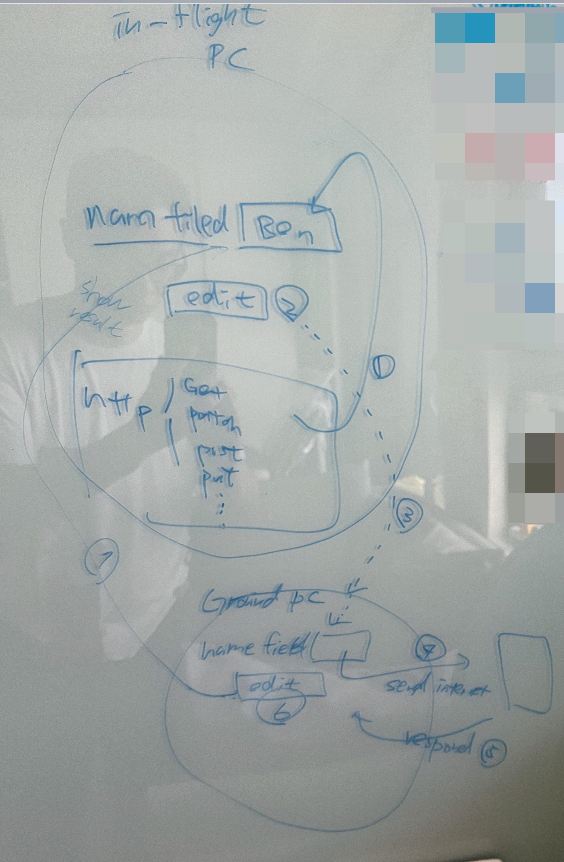 in-flight
PC
Nam filed
Ben
edit
2
show
result
1
http
Get
patch
post
put
3
7
Ground pc
name field
4
send internet
edit
6
respond
5